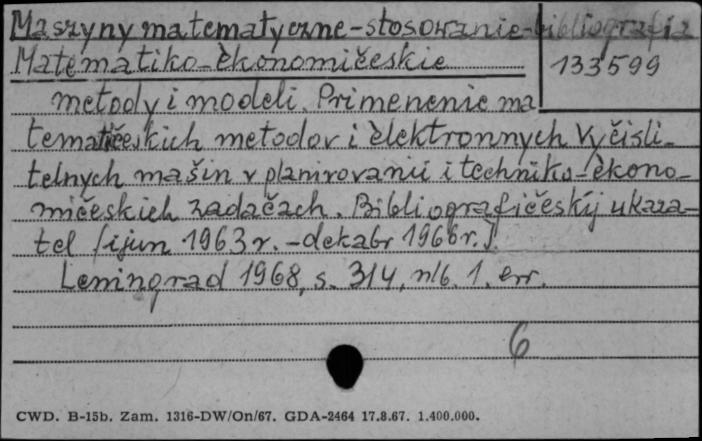 Maszyny matematyczne-stosowanie-bibliografia
Matematiko-èkonomičeskie
133599
metody i modeli. Primenenie ma
tematičeskich metodov i èlektronnych vyčisli-
telnych mašin v planirovanii i techniko-èkono-
mičeskich zadačach. Bibliografičeskij ukaza-
tel (ijun 1963 r. - dekabr 1966 r.).
Leningrad 1968, s. 314, nlb. 1, err.
6
CWD. B-15b. Zam. 1316-DW/On/67. GDA-2464 17.8.67. 1.400.000.